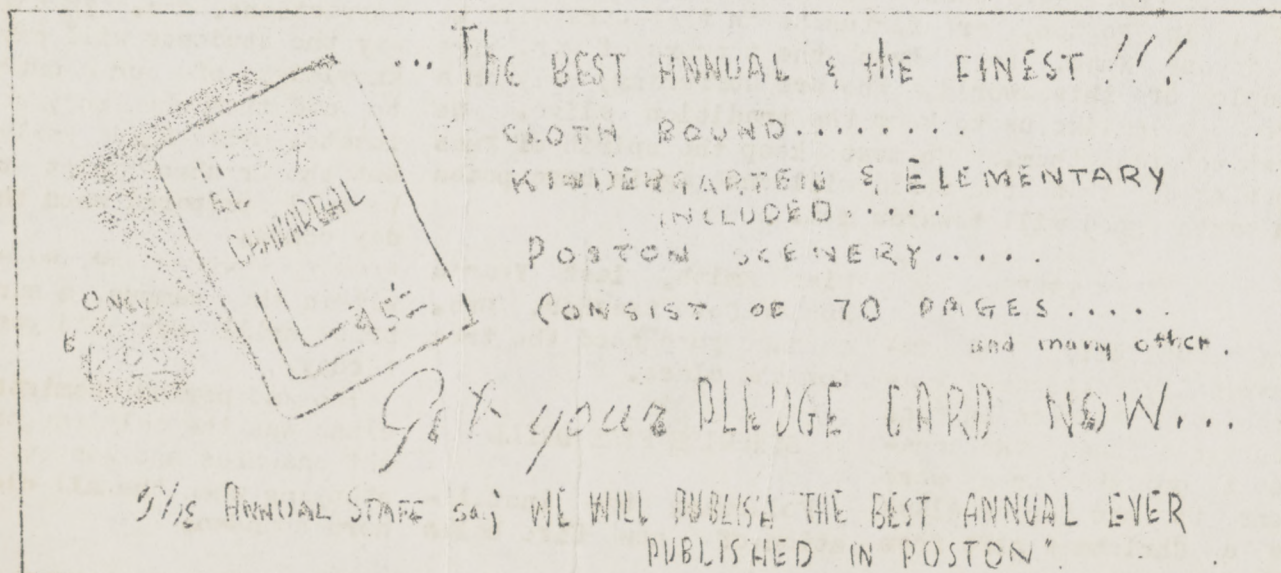 ... The BEST ANNUAL & the FINEST!!!
CLOTH BOUND.........
KINDERGARTEN & ELEMENTARY
INCLUDED.....
POSTON SCENERY.....
CONSIST OF 70 PAGES.....
and many other.
EL
'45
ONLY
Get your PLEDGE CARD NOW...
ANNUAL STAFF say WE WILL PUBLISH THE BEST ANNUAL EVER
PUBLISHED IN POSTON".